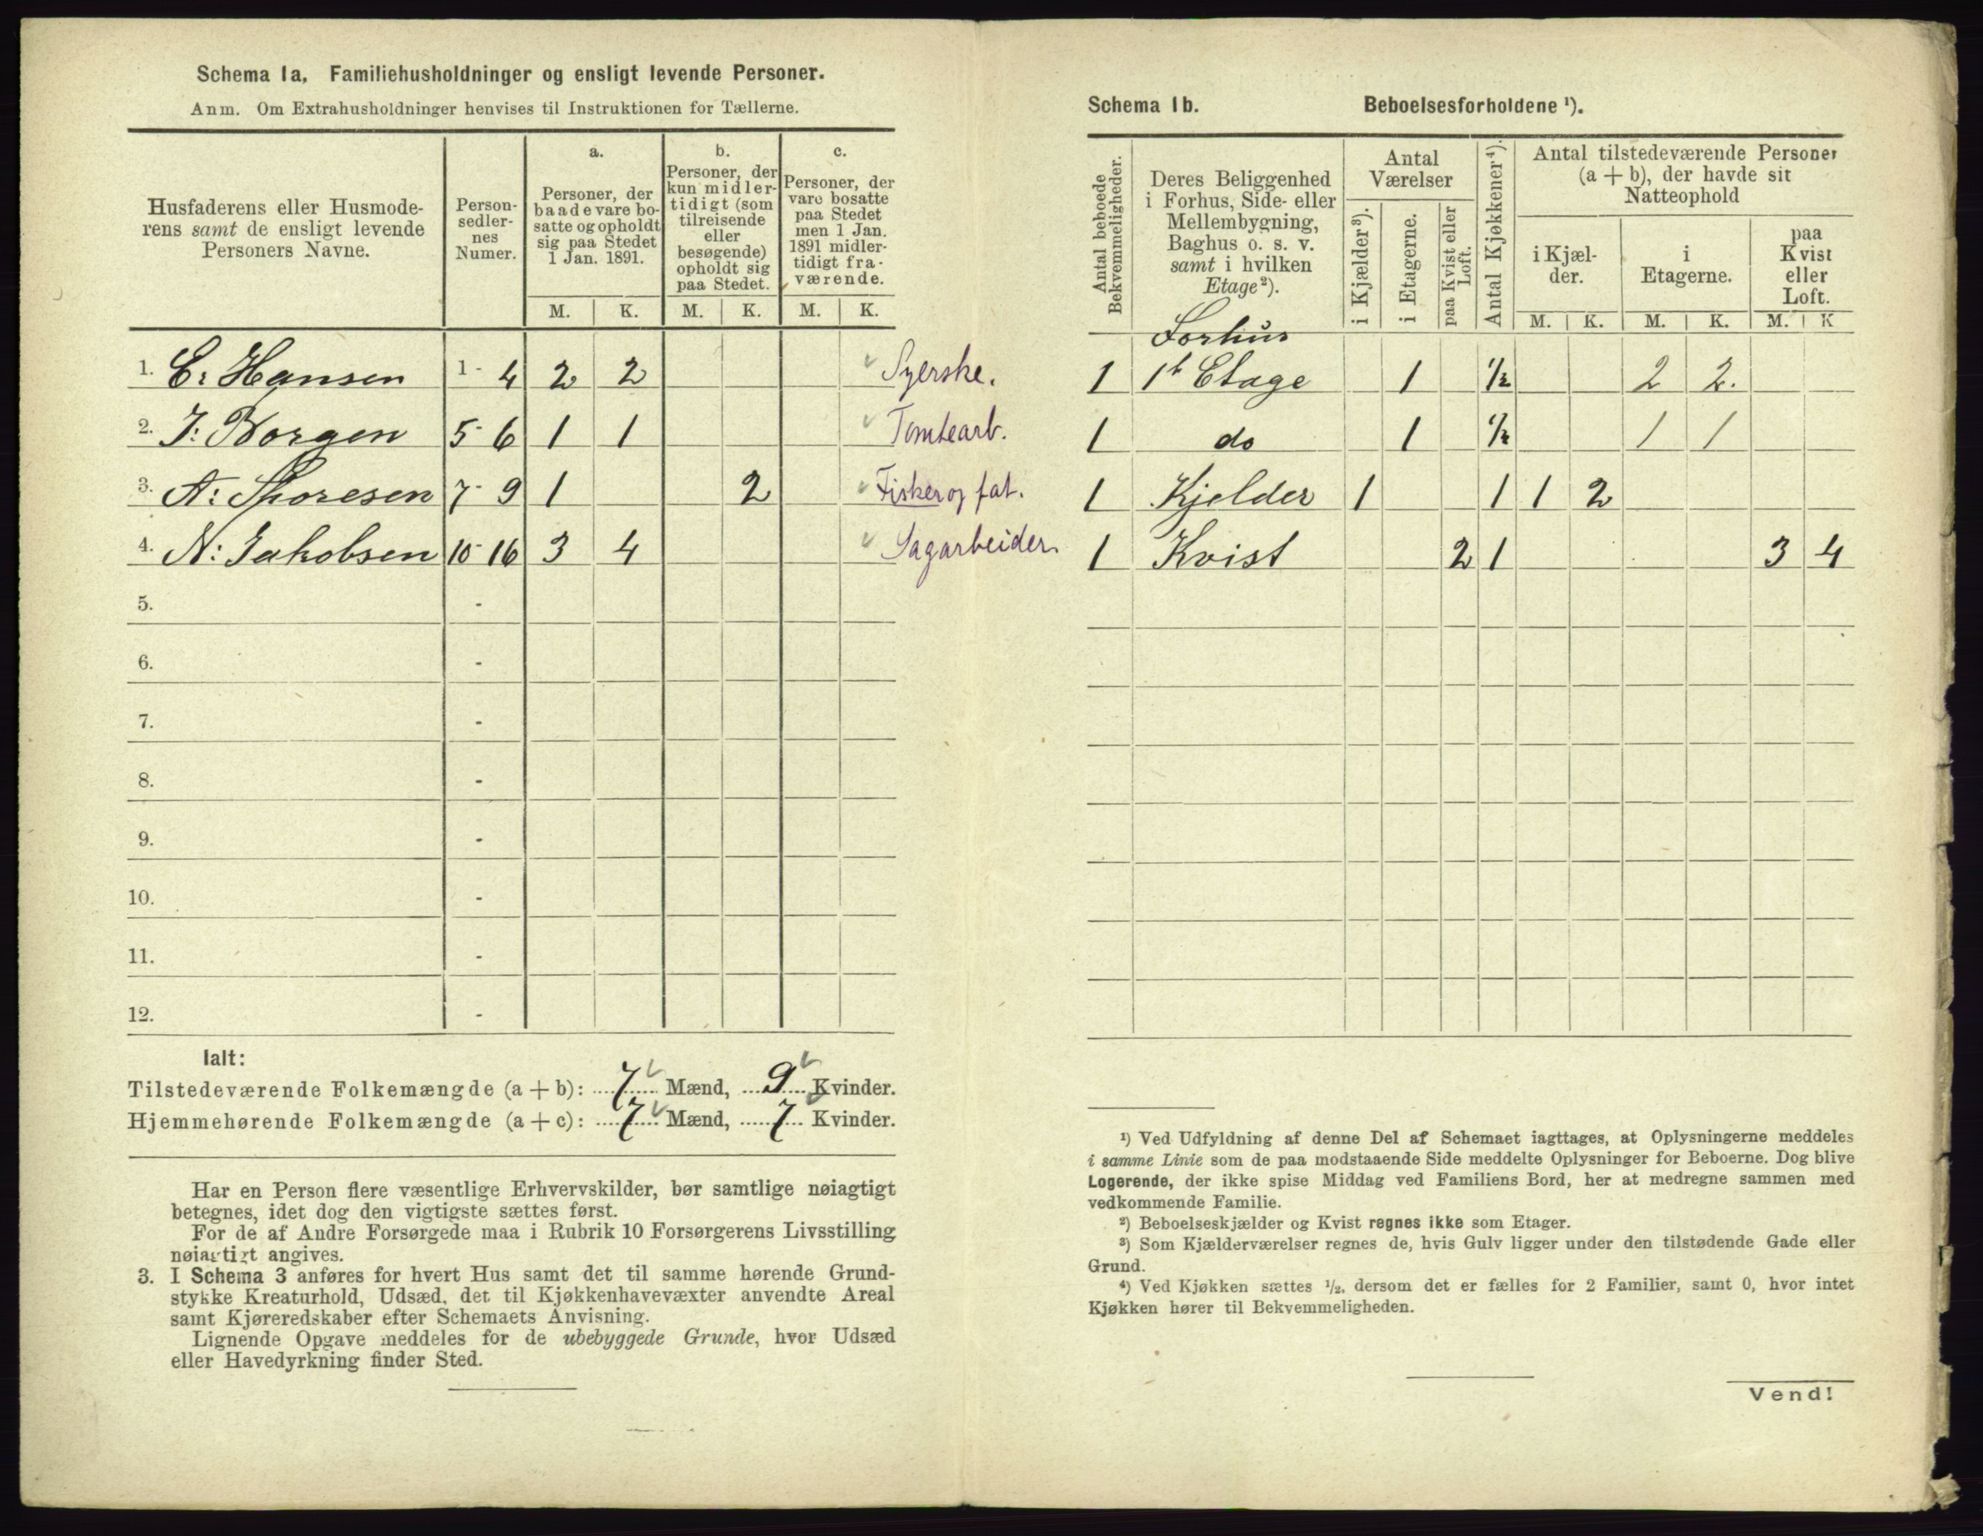 Schema 1a. Familiehusholdninger og ensligt levende Personer.
Anm. Om Extrahusholdninger henvises til Instruktionen for Tællerne.
Husfaderens eller Husmode-
rens samt de ensligt levende
Personers Navne.
Person-
sedler-
nes
Numer.
a.
Personer, der
baade vare bo-
satte og opholdt
sig paa Stedet
1 Jan. 1891.
b.
Personer, der
kun midler-
tidigt (som
tilreisende
eller
besøgende)
opholdt sig
paa Stedet.
c.
Personer, der
vare bosatte
paa Stedet
men 1 Jan.
1891 midler-
tidigt fra-
værende.
M. K. M. K. M. K.
1. C: Hansen 1 - 4 2 2 Syerske.
2. J: Borgen 5 - 6 1 1 Tomtearb.
3. A: Thoresen 7 - 9 1 2 Fisker og fat.
4. N: Jakobsen 10 - 16 3 4 Sagarbeider.
5. -
6. -
7. -
8. -
9. -
10. -
11. -
12. -
Ialt:
Tilstedeværende Folkemængde (a + b): 7 Mænd, 9 Kvinder.
Hjemmehørende Folkemængde (a + c): 7 Mænd, 7 Kvinder.
Har en Person flere væsentlige Erhvervskilder, bør samtlige nøiagtigt
betegnes, idet dog den vigtigste sættes først.
For de af Andre Forsørgede maa i Rubrik 10 Forsørgerens Livsstilling
nøiagtigt angives.
3. I Schema 3 anføres for hvert Hus samt det til samme hørende Grund-
stykke Kreaturhold, Udsæd, det til Kjøkkenhavevæxter anvendte Areal
samt Kjøreredskaber efter Schemaets Anvisning.
Lignende Opgave meddeles for de ubebyggede Grunde, hvor Udsæd
eller Havedyrkning finder Sted.
Schema 1b. Beboelsesforholdene ¹).
Antal beboede
Bekvemmeligheder.
Deres Beliggenhed
i Forhus, Side- eller
Mellembygning,
Baghus o. s. v.
samt i hvilken
Etage²).
Antal
Værelser
i Kjælder³).
i Etagerne.
paa Kvist eller
Loft.
Antal Kjøkkener⁴).
Antal tilstedeværende Personer
(a + b), der havde sit
Natteophold
i Kjæl-
der.
i
Etagerne.
paa
Kvist
eller
Loft.
M. K. M. K. M. K
Forhus
1 1ste Etage 1 ½ 2 2.
1 do 1 ½ 1 1
1 Kjelder 1 1 1 2
1 Kvist 2 1 3 4
¹) Ved Udfyldning af denne Del af Schemaet iagttages, at Oplysningerne meddeles
i samme Linie som de paa modstaaende Side meddelte Oplysninger for Beboerne. Dog blive
Logerende, der ikke spise Middag ved Familiens Bord, her at medregne sammen med
vedkommende Familie.
²) Beboelseskjælder og Kvist regnes ikke som Etager.
³) Som Kjælderværelser regnes de, hvis Gulv ligger under den tilstødende Gade eller
Grund.
⁴) Ved Kjøkken sættes ½, dersom det er fælles for 2 Familier, samt 0, hvor intet
Kjøkken hører til Bekvemmeligheden.
Vend!